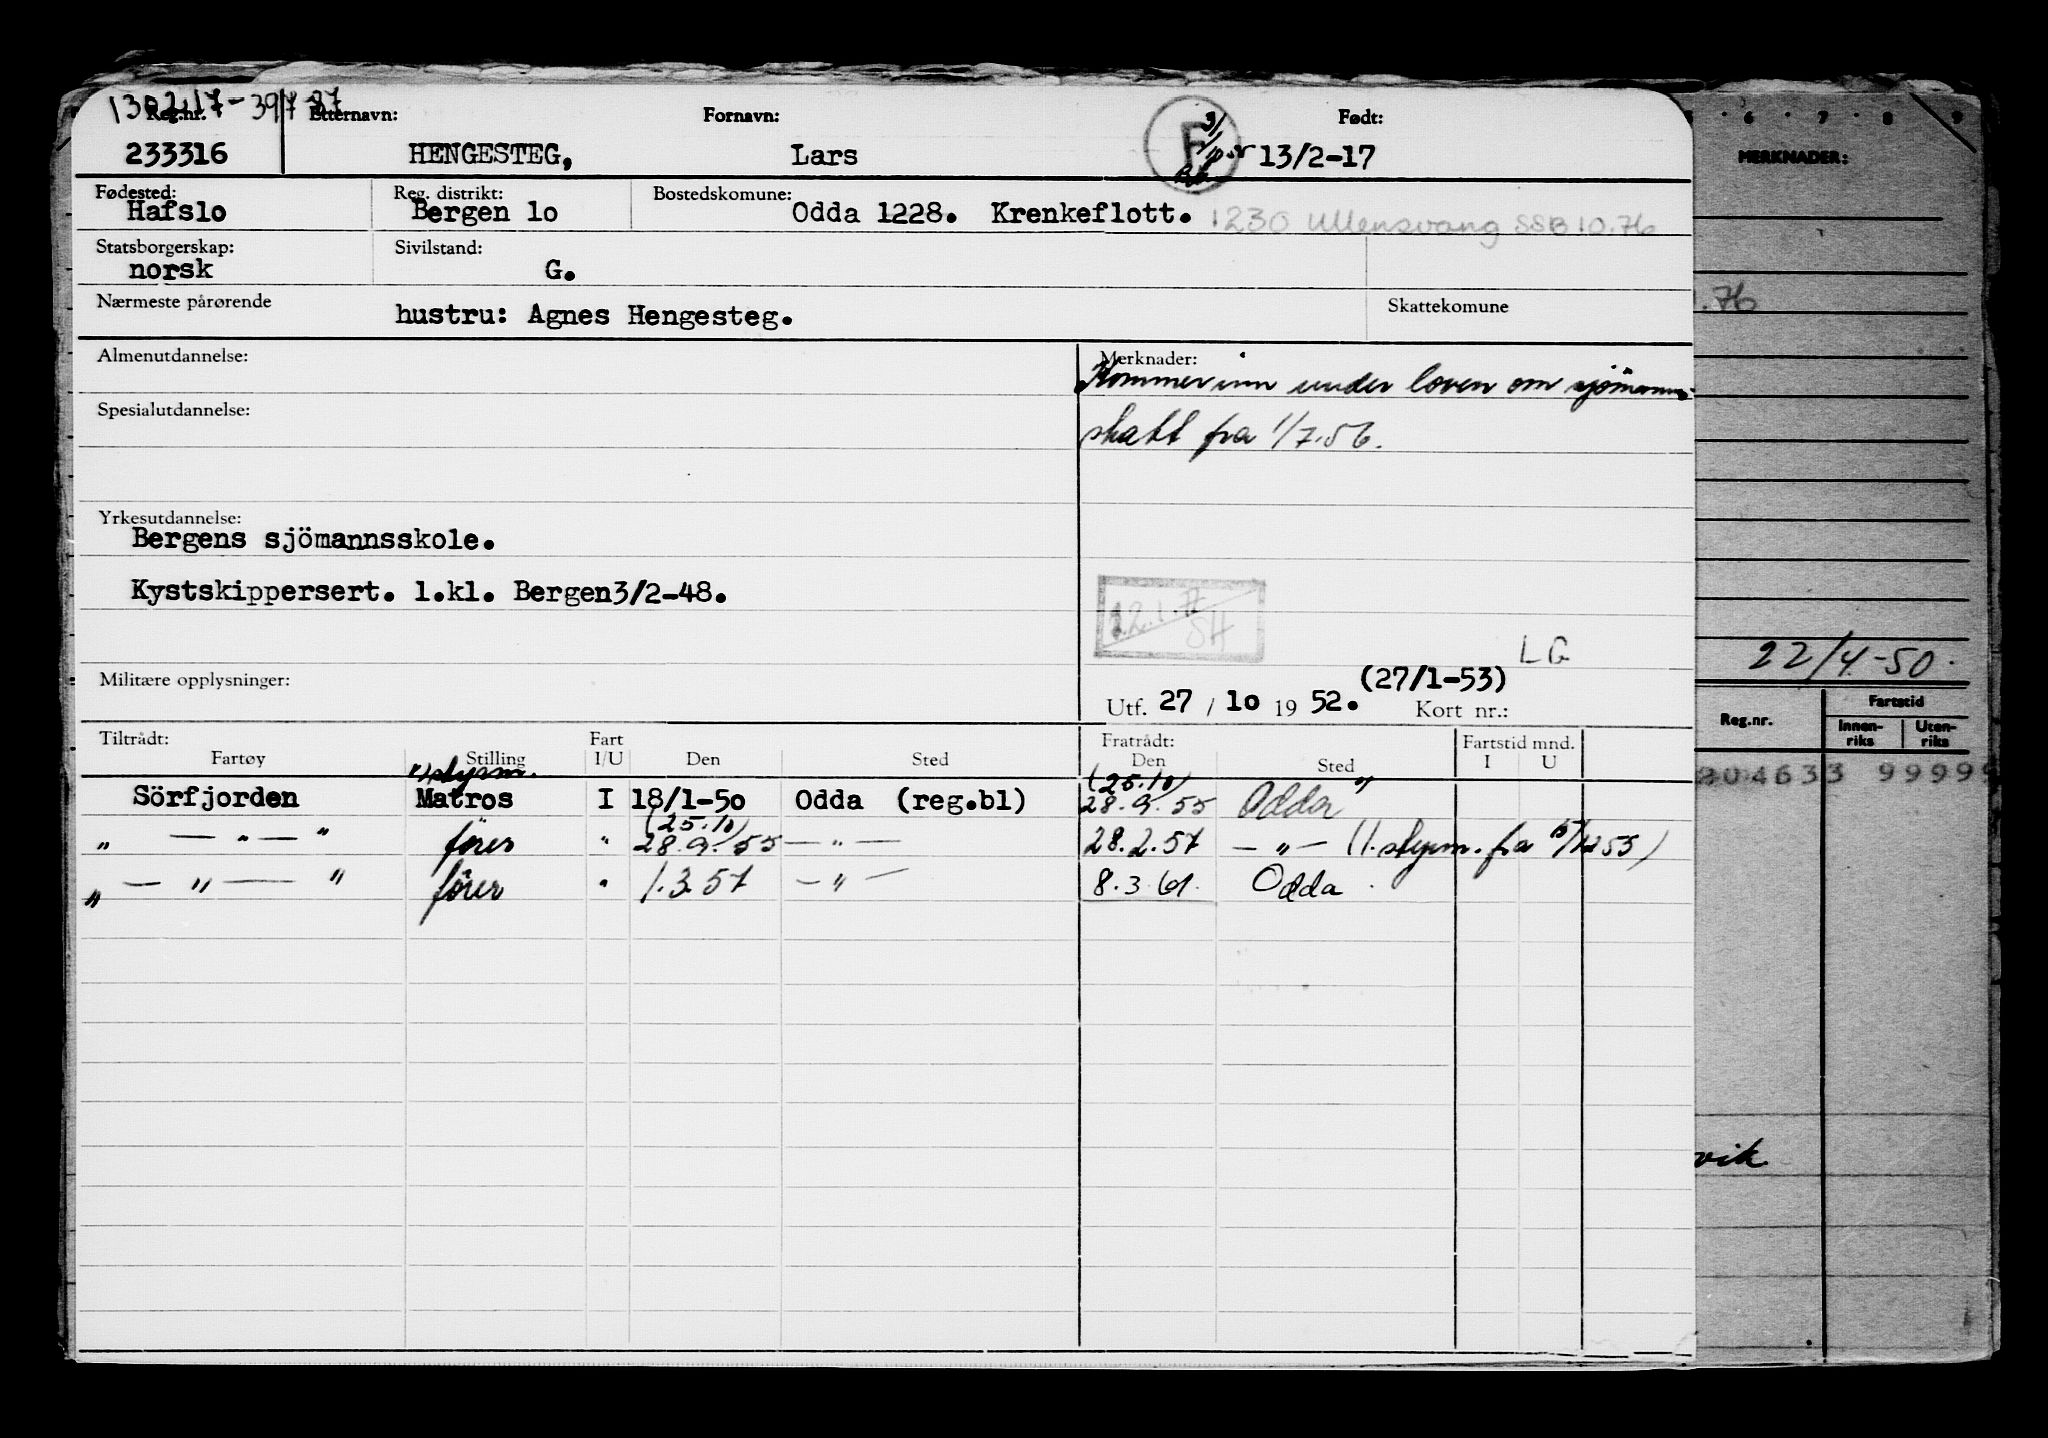 130217-39787
Reg.nr. Etternavn: Fornavn: Født:
233316 HENGESTEG, Lars F 13/2-17
Fødested: Reg. distrikt: Bostedskomune:
Hafslo Bergen 1o Odda 1228. Krenkeflott. 1230 Ullensvang SSB 10.76
Statsborgerskap: Sivilstand:
norsk G.
Nærmeste pårørende Skattekomune
hustru: Agnes Hengesteg.
Almenutdannelse: Merknader:
Kommer inn under loven om sjömanns-
Spesialutdannelse:
skatt fra 1/7.56.
Yrkesutdannelse:
Bergens sjömannsskole.
Kystskippersert. 1.kl. Bergen3/2-48.
12.1.77
SH
LG
Militære opplysninger:
(27/1-53)
Utf. 27 / 1o 19 52. Kort nr.:
Tiltrådt: Fart Fratrådt: Fartstid mnd.
Fartøy Stilling I/U Den Sted Den Sted I U
styrm. (25.10)
Sörfjorden Matros I 18/1-5o Odda (reg.bl) 28.9.55 Odda "
(25.10)
" — " — " förer " 28.9.55 — " — 28.2.57 — " — (1. styrm. fra 53)
" — " — " förer " 1.3.57 — " — 8.3.61. Odda
6 7 8 9
MERKNADER:
.76
22/4-50.
Reg.nr. Fartstid
Innen-riks Uten-riks
204633 99999
vik